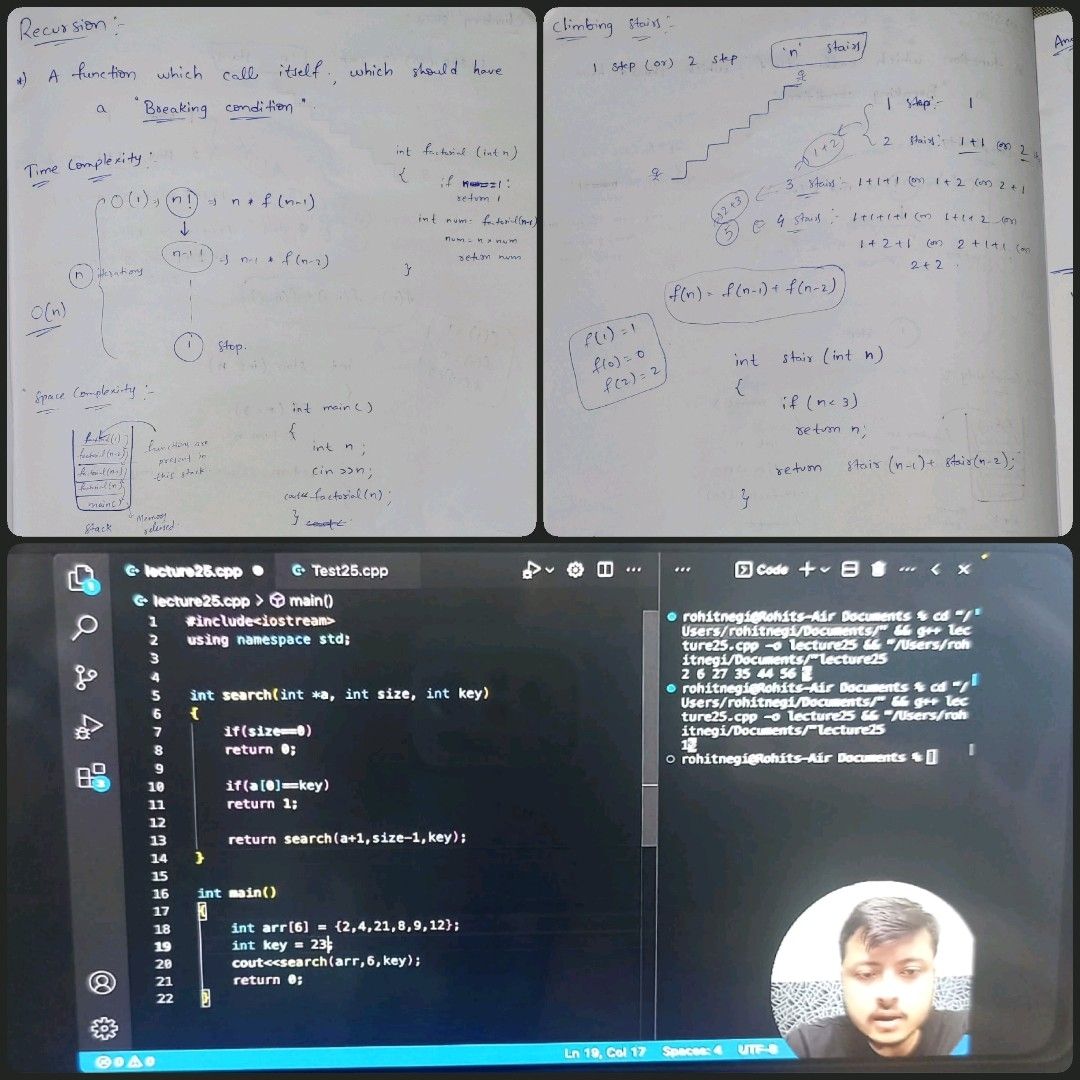 Recursion :-
*) A function which call itself., which should have
a "Breaking condition".
Time Complexity :
O(1) → n! → n * f(n-1)
n-1! → n-1 * f(n-2)
n iterations
O(n)
1 stop.
int factorial (int n)
{
if n==1:
return 1
int num = factorial(n-1)
num = n * num
return num
}
Space Complexity :-
factorial(n-2)
factorial(n-1)
factorial(n)
main()
Stack
functions are
present in
this stack.
Memory
released.
int main()
{
int n;
cin >>n;
cout<<factorial(n);
}
Climbing stairs :-
1 step (or) 2 step
'n' stairs
1 step :- 1
2 stairs :- 1+1 (or) 2
1+2
3 stairs :- 1+1+1 (or) 1+2 (or) 2+1
2+3
5
4 stairs :- 1+1+1+1 (or) 1+1+2 (or)
1+2+1 (or) 2+1+1 (or)
2+2.
f(n) = f(n-1) + f(n-2)
f(1) = 1
f(0) = 0
f(2) = 2
int stair (int n)
{
if (n<3)
return n;
return stair (n-1) + stair(n-2);
}
lecture25.cpp Test25.cpp
lecture25.cpp > main()
1 #include<iostream>
2 using namespace std;
3
4
5 int search(int *a, int size, int key)
6 {
7 if(size==0)
8 return 0;
9
10 if(a[0]==key)
11 return 1;
12
13 return search(a+1,size-1,key);
14 }
15
16 int main()
17 {
18 int arr[6] = {2,4,21,8,9,12};
19 int key = 23;
20 cout<<search(arr,6,key);
21 return 0;
22 }
Code
rohitnegi@Rohits-Air Documents % cd "/
Users/rohitnegi/Documents/" && g++ lec
ture25.cpp -o lecture25 && "/Users/roh
itnegi/Documents/"lecture25
2 6 27 35 44 56 %
rohitnegi@Rohits-Air Documents % cd "/
Users/rohitnegi/Documents/" && g++ lec
ture25.cpp -o lecture25 && "/Users/roh
itnegi/Documents/"lecture25
1%
rohitnegi@Rohits-Air Documents %
0 0 Ln 19, Col 17 Spaces: 4 UTF-8